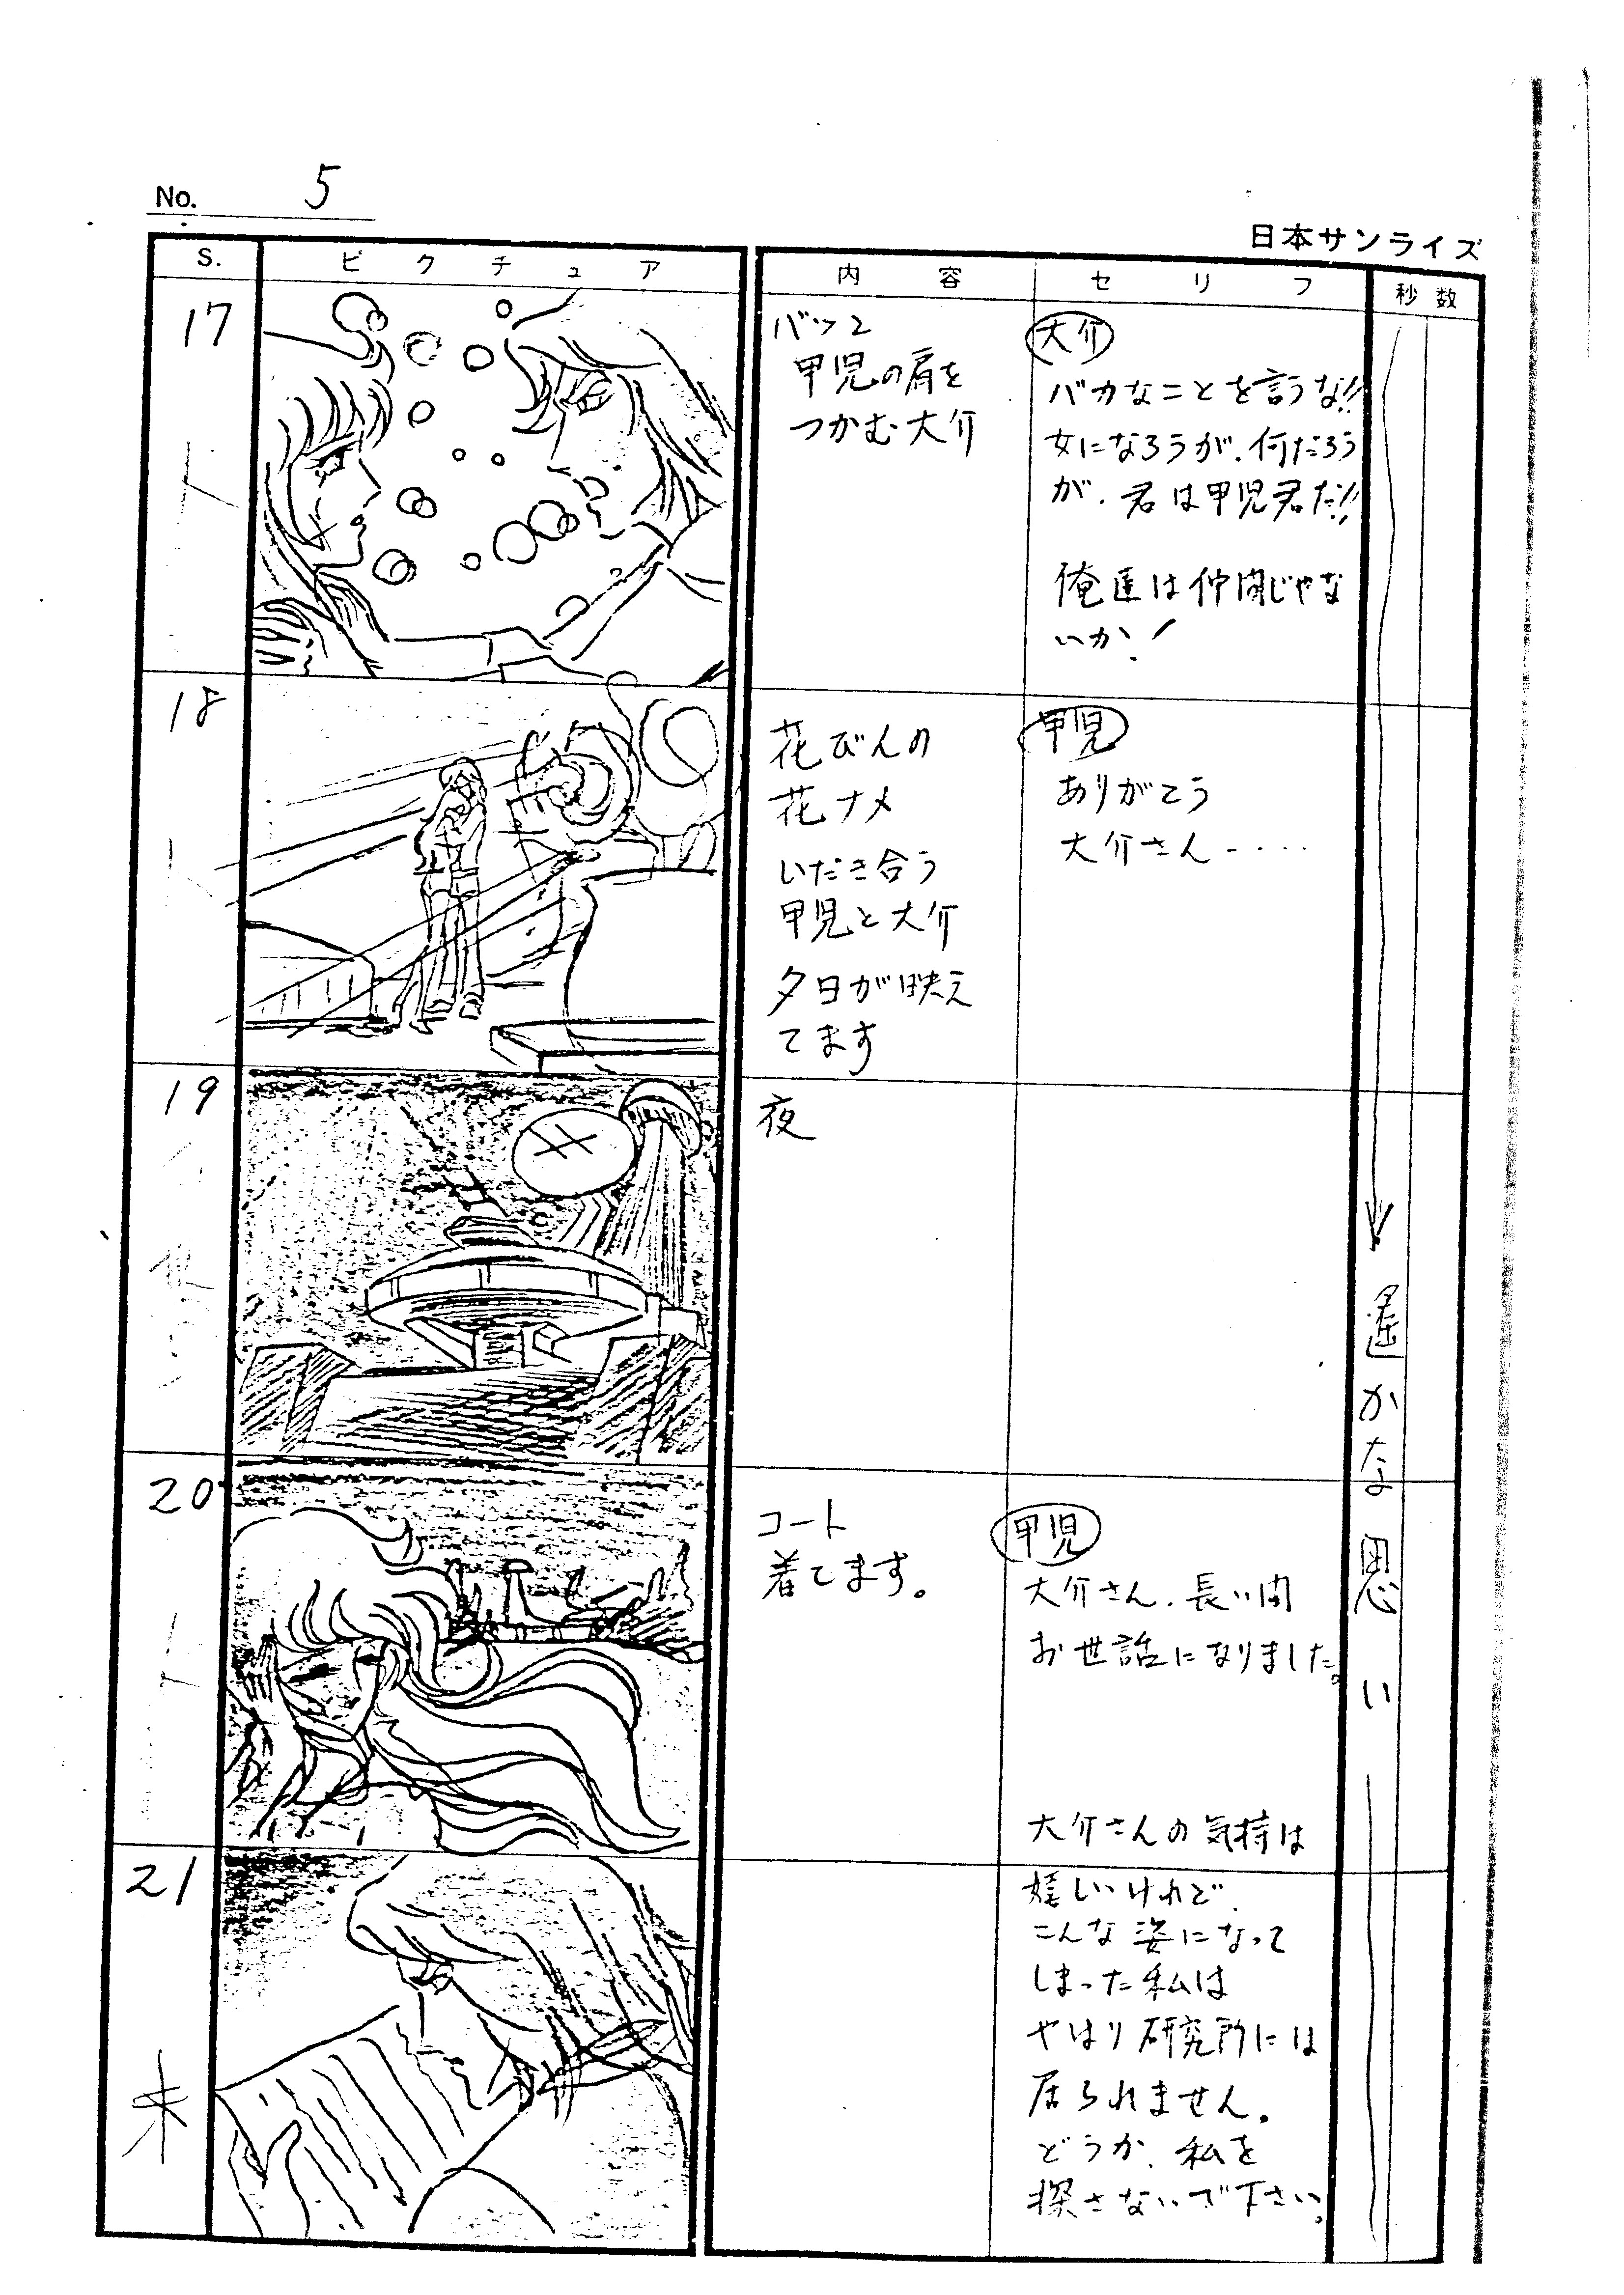 No. 5
日本サンライズ
S. ピクチュア 内容 セリフ 秒数
17
バック
甲児の肩を
つかむ大介
大介
バカなことを言うな!!
女になろうが、何だろう
が、君は甲児君だ!!
俺達は仲間じゃな
いか!
18
花びんの
花ナメ
いだき合う
甲児と大介
夕日が映え
てます
甲児
ありがとう
大介さん‥‥
19
夜
20
コート
着てます。
甲児
大介さん、長い間
お世話になりました。
大介さんの気持は
21
未
嬉しいけれど、
こんな姿になって
しまった私は
やはり研究所には
居られません。
どうか、私を
探さないで下さい。
遥かな思い